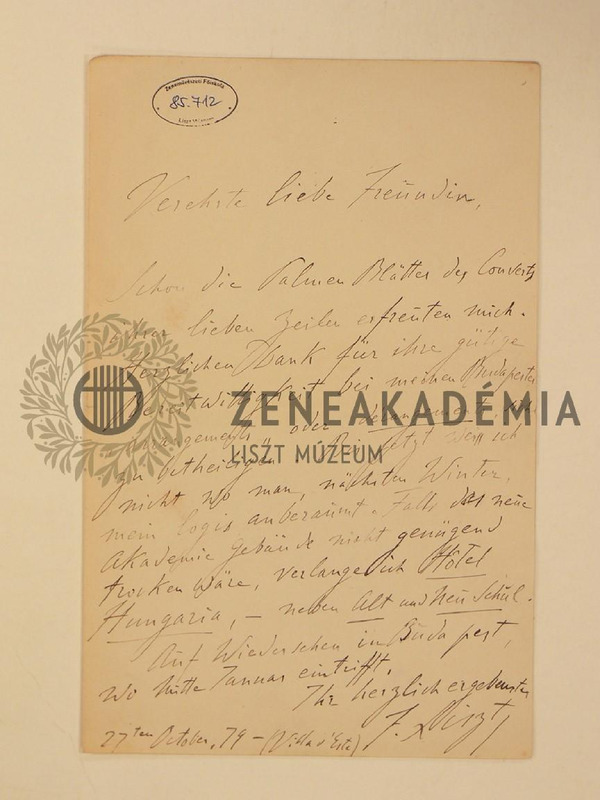 Zeneművészeti Főiskola
85.712
Liszt Múzeum
Verehrte liebe Freündin,
Schon die Palmen Blätter des Couverts
Ihrer lieben Zeilen erfreuten mich.
Herzlichen Dank für ihre gütige
Bereitwilligkeit bei meinen Budapester
ZENEAKADÉMIA
arrangements oder
LISZT MÚZEUM
zu betheiligen. Bis jetzt weiss ich
nicht wo man, nächsten Winter,
mein logis anberaumt. Falls das neue
Akademie Gebäude nicht genügend
trocken wäre, verlange ich Hôtel
Hungaria, – neben Alt und Neu Schül.
Auf Wiedersehen in Budapest,
wo Mitte Januar eintrifft,
Ihr herzlich ergebenster
F. Liszt
27ten October, 79 – (Villa d'Este)